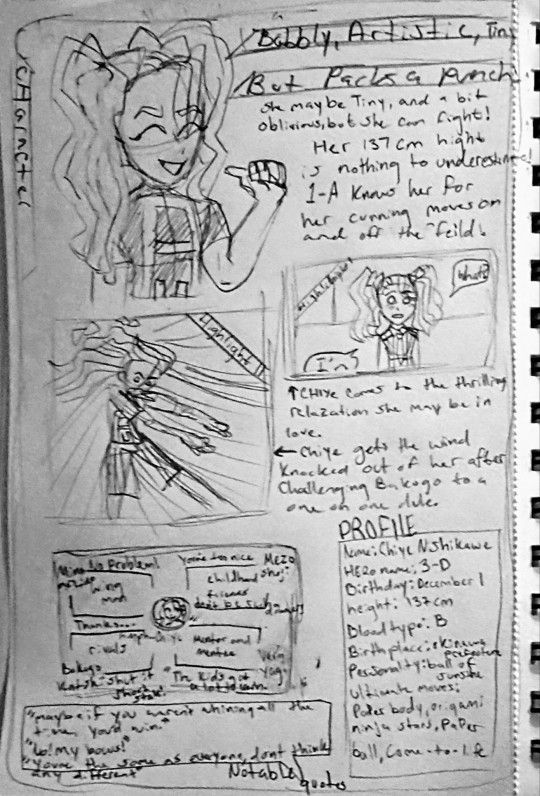 Character
Bubbly, Artistic, Tiny
But Packs a punch
she maybe Tiny, and a bit
oblivious, but she can fight!
Her 137cm hight
is nothing to underestimate!
1-A knows her for
her cunning moves on
and off the feild!
What?
I'm
Highlight 1
↑ CHIYE comes to the thrilling
relazation she may be in
love.
← Chiye gets the wind
knocked out of her after
Challenging Bakogo to a
one on one dule.
PROFILE
Name: Chiye Nishikawe
HERO name: 3-D
Birthday: December 1
height: 137cm
Blood type: B
Birthplace: okinawa
prefecture
Personality: ball of
sunshie
ultimate moves:
Paper body, origami
ninja stars, PaPer
ball, Come-to-life
Problem!
You're too nice
Mezo
childhood
friends
wing
man
Thanks...
rivals
Mentor and
mentee
Bakogo
Katski: shut it
short
The kids got
a lot to learn
"maybe if you weren't whining all the
time, you'd win."
"Lo! my bows!"
"You're the same as everyone, dont think
any different"
Notable
quotes